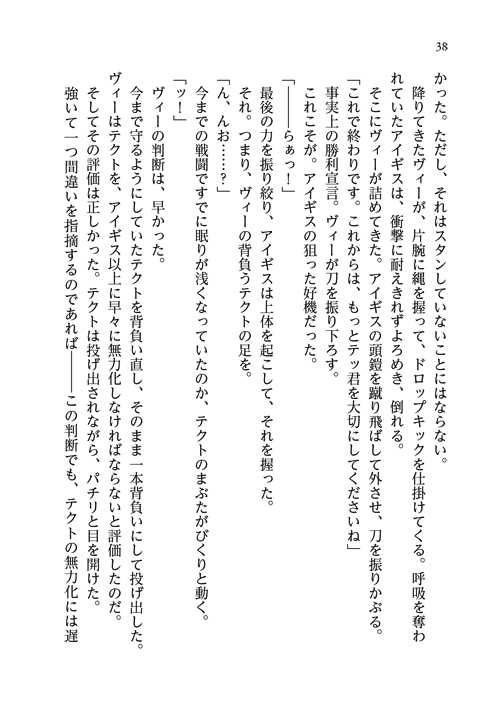 38
かった。ただし、それはスタンしていないことにはならない。
降りてきたヴィーが、片腕に縄を握って、ドロップキックを仕掛けてくる。呼吸を奪わ
れていたアイギスは、衝撃に耐えきれずよろめき、倒れる。
そこにヴィーが詰めてきた。アイギスの頭鎧を蹴り飛ばして外させ、刀を振りかぶる。
「これで終わりです。これからは、もっとテッ君を大切にしてくださいね」
事実上の勝利宣言。ヴィーが刀を振り下ろす。
これこそが。アイギスの狙った好機だった。
「――らぁっ！」
最後の力を振り絞り、アイギスは上体を起こして、それを握った。
それ。つまり、ヴィーの背負うテクトの足を。
「ん、んお……？」
今までの戦闘ですでに眠りが浅くなっていたのか、テクトのまぶたがびくりと動く。
「ッ！」
ヴィーの判断は、早かった。
今まで守るようにしていたテクトを背負い直し、そのまま一本背負いにして投げ出した。
ヴィーはテクトを、アイギス以上に早々に無力化しなければならないと評価したのだ。
そしてその評価は正しかった。テクトは投げ出されながら、パチリと目を開けた。
強いて一つ間違いを指摘するのであれば――この判断でも、テクトの無力化には遅